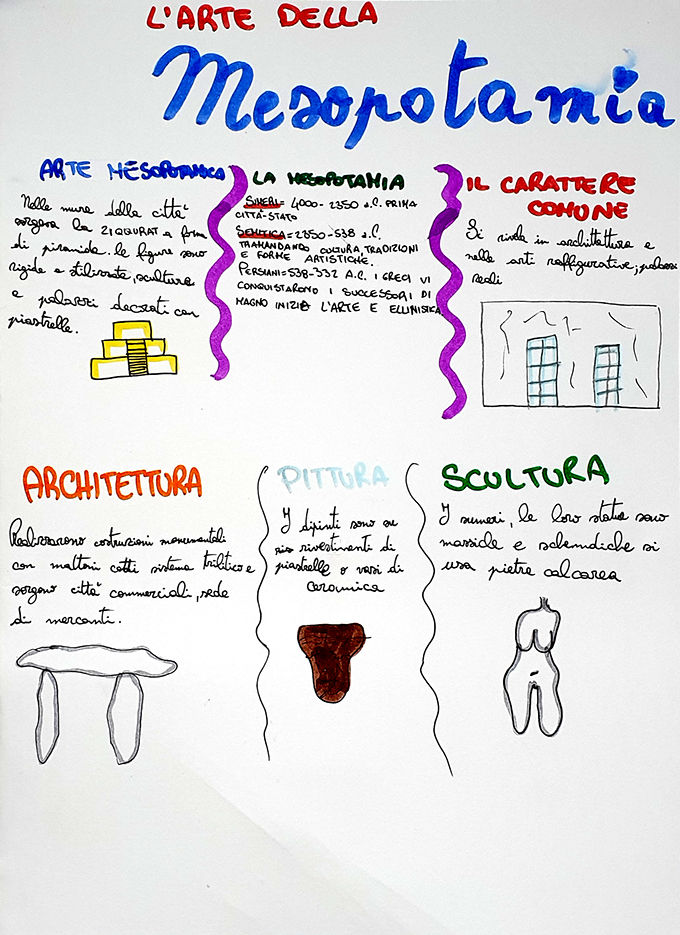 L'ARTE DELLA
Mesopotamia
ARTE MESOPOTAMICA
Nelle mura della città
sorgeva la ZIGGURAT a forma
di piramide. le figure sono
rigide e stilizzate, sculture
e palazzi decorati con
piastrelle.
LA MESOPOTAMIA
SUMERI= 4000-2350 a.C. PRIMA
CITTÀ-STATO
SEMITICA=2350-538 a.C.
TRAMANDANO CULTURA, TRADIZIONI
E FORME ARTISTICHE.
PERSIANI=538-332 A.C. I GRECI VI
CONQUISTARONO I SUCCESSORI DI
MAGNO INIZIÒ L'ARTE E ELLINISTICA
IL CARATTERE
COMUNE
Si rivela in architettura e
nelle arti raffigurative; palazzi
reali
ARCHITETTURA
Realizzarono costruzioni monumentali
con mattoni cotti sistema trilitico e
sorgono città commerciali, sede
di mercanti.
PITTURA
I dipinti sono su
rivestimenti di
piastrelle o vasi di
ceramica
SCULTURA
I sumeri, le loro statue sono
masside e si
usa pietra calcarea